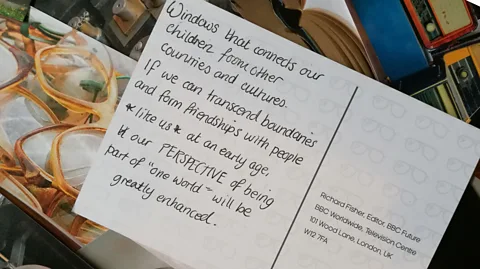 Windows that connects our
children from other
countries and cultures.
If we can transcend boundaries
and form friendships with people
*like us* at an early age,
our PERSPECTIVE of being
part of "one world" will be
greatly enhanced.
Richard Fisher, Editor, BBC Future
BBC Worldwide, Television Centre
101 Wood Lane, London, UK
W12 7FA